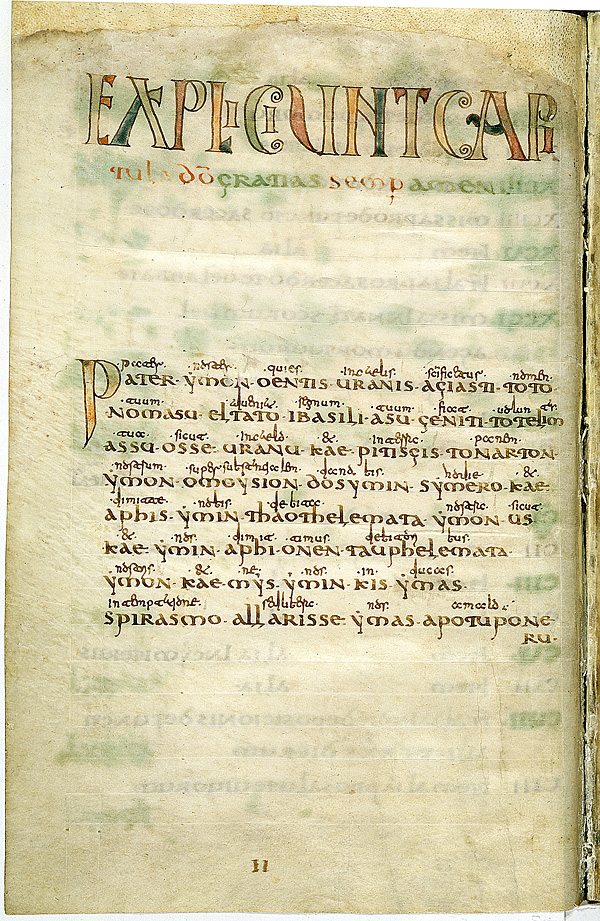 EXPLICIUNT CAPI
tula dō gratias semp amen
pater · noster · quies · in celis · scificetur · nomen
PATER · YMON · OENTIS · URANIS · AGIASTI · TOTO
tuum · adveniat · regnum · tuum · fiat · volun tas
NOMASU · ELTATO · IBASILI · ASU · GENITI · TOTELIM
tua · sicut · in celo · & · in terra · panem
ASSU · OSSE · URANU · KAE · PITISGIS · TONARTON
nostrum · super substancialem · da no bis · hodie · &
YMON · OMOYSION · DOSYMIN · SYMERO · KAE
dimitte · nobis · debita · nostra · sicut
APHIS · YMIN · THAOTHELEMATA · YMON · US
& · nos · dimit timus · debitori bus
KAE · YMIN · APHI · ONEN · TAUPHELEMATA
nostris · & · ne · nos · in · ducas
YMON · KAE · MYS · YMIN · KIS · YMAS
in temptatione · sed libera · nos · a malo
SPIRASMO · ALLARISSE · YMAS · APOTUPONE
RU
II